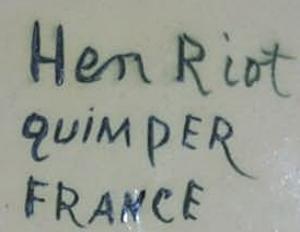 Hen Riot
QUIMPER
FRANCE